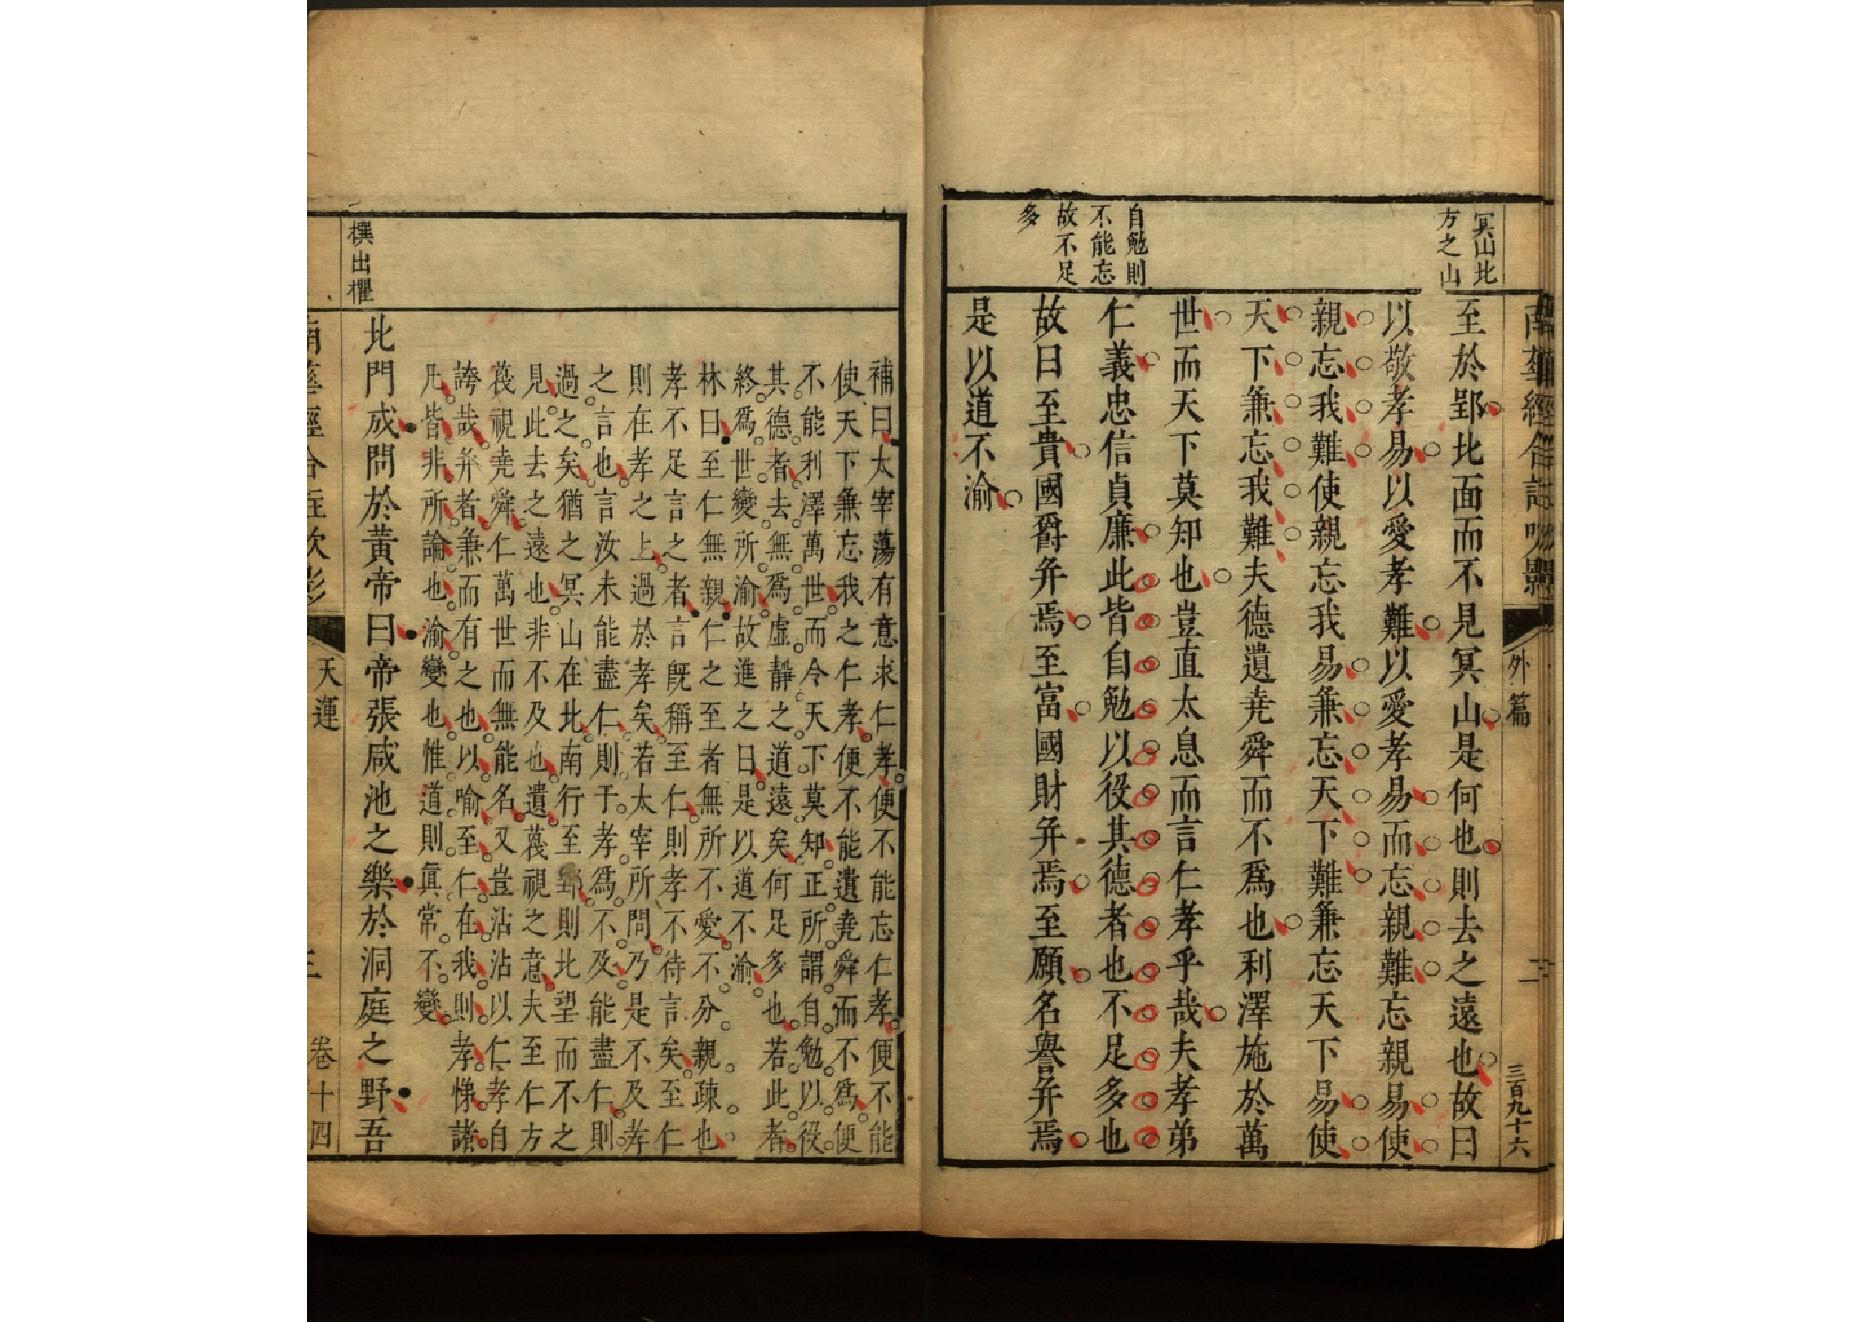 冥山北
方之山
自勉則
不能忘
故不足
多
外篇
三百九十六
至於郢北面而不見冥山是何也則去之遠也故曰
以敬孝易以愛孝難以愛孝易而忘親難忘親易使
親忘我難使親忘我易兼忘天下難兼忘天下易使
天下兼忘我難夫德遺堯舜而不為也利澤施於萬
世而天下莫知也豈直太息而言仁孝乎哉夫孝弟
仁義忠信貞廉此皆自勉以役其德者也不足多也
故曰至貴國爵并焉至富國財并焉至願名譽并焉
是以道不渝
補曰太宰蕩有意求仁孝便不能忘仁孝便不能
使天下兼忘我之仁孝便不能遺堯舜而不為便
不能利澤萬世而令天下莫知正所謂自勉以役
其德者去無為虛靜之道遠矣何足多也若此者
終為世變所渝故進之曰是以道不渝
林曰至仁無親仁之至者無所不愛不分親疎也
孝不足言之者言既稱至仁則孝不待言矣至仁
則在孝之上過於孝矣若太宰所問乃是不及孝
之言也言汝未能盡仁則于孝為不及能盡仁則
過之矣猶之冥山在北南行至郢則北望而不之
見此去之遠也非不及也遺蔑視之意夫至仁方
蔑視堯舜仁萬世而無能名又豈沾沾以仁孝自
誇哉并者兼而有之也以喻至仁在我則孝悌諸
凡皆非所論也渝變也惟道則真常不變
北門成問於黃帝曰帝張咸池之樂於洞庭之野吾
撰出懼
天運
三
卷十四